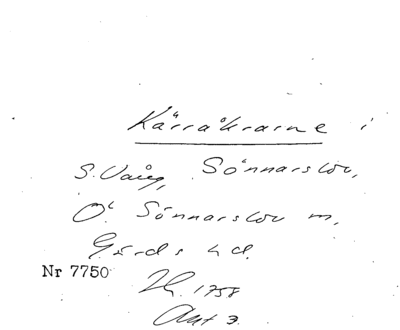 Kärråkrarne i
S. Vång, Sönnarslöv,
Ö. Sönnarslöv m,
Gärds hd.
Nr 7750
1758
Akt 3.